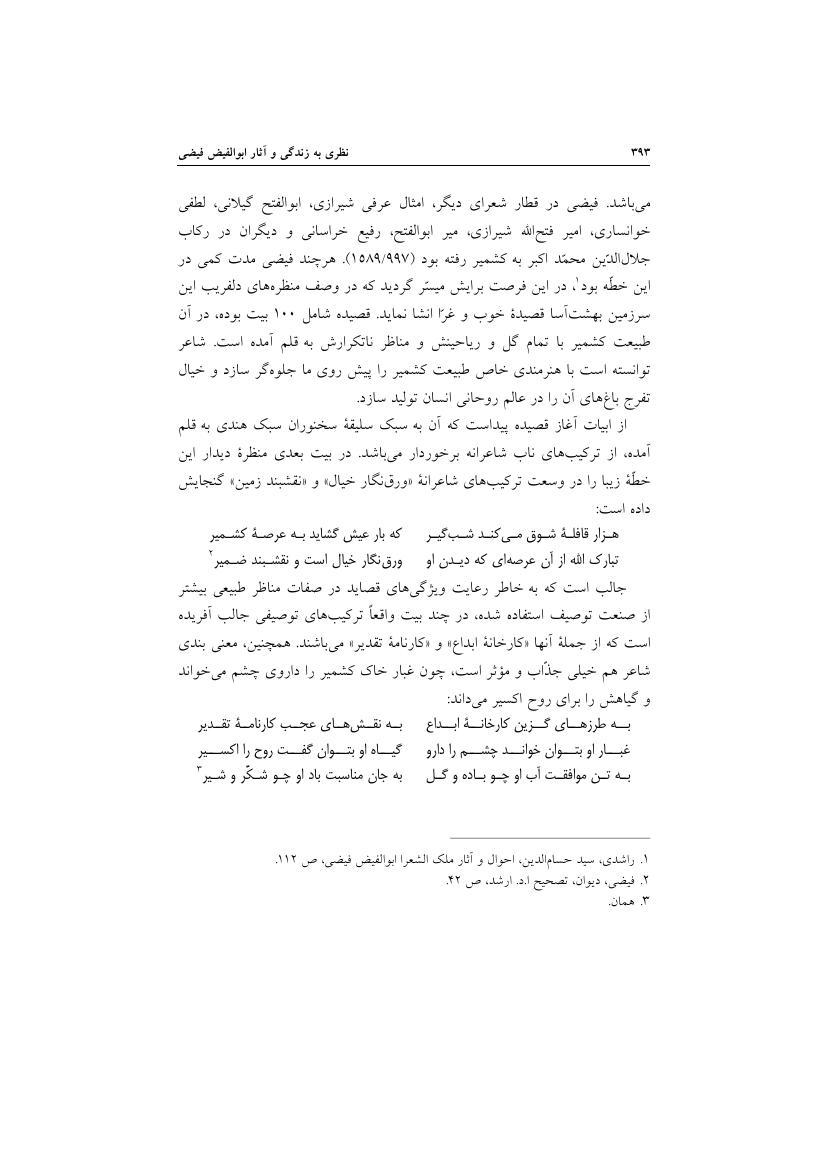 ۳۹۳ نظری به زندگی و آثار ابوالفیض فیضی
می‌باشد. فیضی در قطار شعرای دیگر، امثال عرفی شیرازی، ابوالفتح گیلانی، لطفی
خوانساری، امیر فتح‌الله شیرازی، میر ابوالفتح، رفیع خراسانی و دیگران در رکاب
جلال‌الدّین محمّد اکبر به کشمیر رفته بود (۱۵۸۹/۹۹۷). هرچند فیضی مدت کمی در
این خطّه بود۱، در این فرصت برایش میسّر گردید که در وصف منظره‌های دلفریب این
سرزمین بهشت‌آسا قصیدهٔ خوب و غرّا انشا نماید. قصیده شامل ۱۰۰ بیت بوده، در آن
طبیعت کشمیر با تمام گل و ریاحینش و مناظر ناتکرارش به قلم آمده است. شاعر
توانسته است با هنرمندی خاص طبیعت کشمیر را پیش روی ما جلوه‌گر سازد و خیال
تفرج باغ‌های آن را در عالم روحانی انسان تولید سازد.
از ابیات آغاز قصیده پیداست که آن به سبک سلیقهٔ سخنوران سبک هندی به قلم
آمده، از ترکیب‌های ناب شاعرانه برخوردار می‌باشد. در بیت بعدی منظرهٔ دیدار این
خطّهٔ زیبا را در وسعت ترکیب‌های شاعرانهٔ «ورق‌نگار خیال» و «نقشبند زمین» گنجایش
داده است:
هزار قافلهٔ شوق می‌کند شب‌گیر که بار عیش گشاید به عرصهٔ کشمیر
تبارک الله از آن عرصه‌ای که دیدن او ورق‌نگار خیال است و نقشبند ضمیر۲
جالب است که به خاطر رعایت ویژگی‌های قصاید در صفات مناظر طبیعی بیشتر
از صنعت توصیف استفاده شده، در چند بیت واقعاً ترکیب‌های توصیفی جالب آفریده
است که از جملهٔ آنها «کارخانهٔ ابداع» و «کارنامهٔ تقدیر» می‌باشند. همچنین، معنی بندی
شاعر هم خیلی جذّاب و مؤثر است، چون غبار خاک کشمیر را داروی چشم می‌خواند
و گیاهش را برای روح اکسیر می‌داند:
به طرزهای گزین کارخانهٔ ابداع به نقش‌های عجب کارنامهٔ تقدیر
غبار او بتوان خواند چشم را دارو گیاه او بتوان گفت روح را اکسیر
به تن موافقت آب او چو باده و گل به جان مناسبت باد او چو شکّر و شیر۳
۱. راشدی، سید حسام‌الدین، احوال و آثار ملک الشعرا ابوالفیض فیضی، ص ۱۱۲.
۲. فیضی، دیوان، تصحیح ا.د. ارشد، ص ۴۲.
۳. همان.